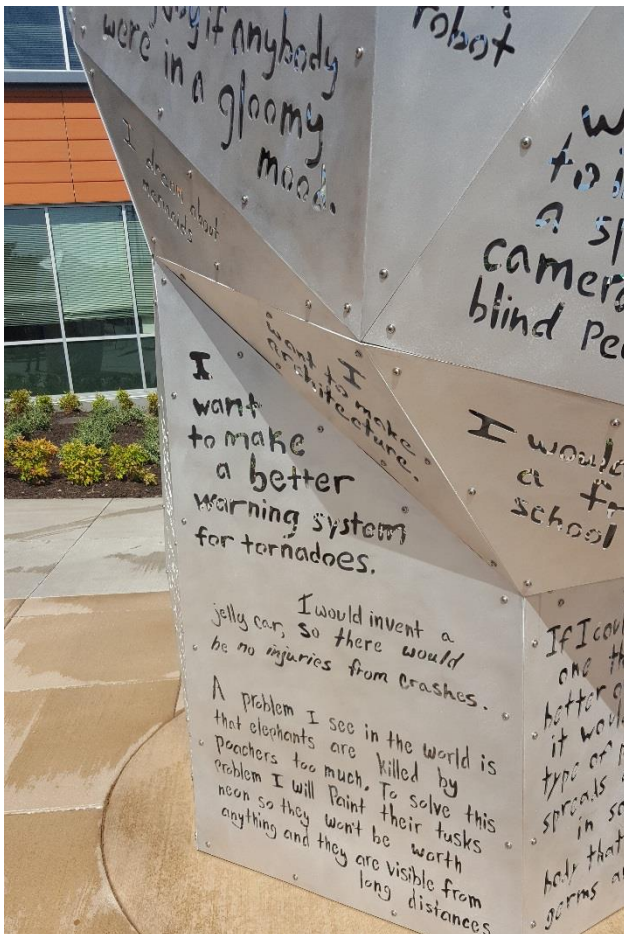 if anybody
were in a gloomy
mood.
robot
I dream about
mermaids
a
camera
blind
I
want to make
architecture.
I
want
to make
a better
warning system
for tornadoes.
I would
a
school
I would invent a
jelly car, so there would
be no injuries from crashes.
A problem I see in the world is
that elephants are killed by
poachers too much. To solve this
problem I will Paint their tusks
neon so they won't be worth
anything and they are visible from
long distances
If I
one
better
it would
type of
spreads
in
body that
germs